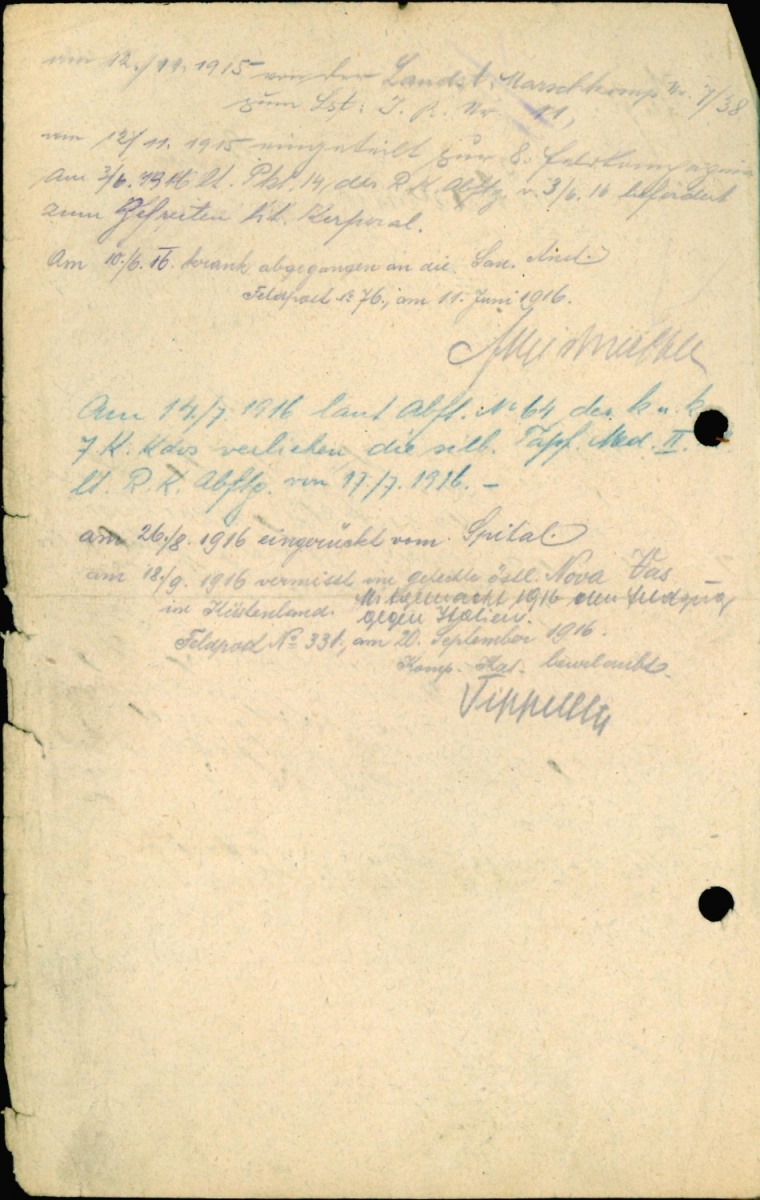 am 12./11. 1915 von der Landst. Marschkomp. Nr. 7/38
zum Lst: I. R. Nr. 11,
am 12/11. 1915 eingeteilt zur 8. Feldkompagnie
Am 3/6. 1916 lt. Pkt. 14, des R. K. Abftg. v. 3/6. 16 befördert
zum Gefreiten tit. Korporal.
Am 10./6. 16. krank abgegangen an die San. Anst.
Feldpost № 76, am 11. Juni 1916.
Am 14/7. 1916 laut Abft. № 64 des k. u. k.
7 K. Kdos verliehen die silb. Tapf. Med. II.
lt. R. K. Abftg. vom 17/7. 1916. –
am 26./8. 1916 eingerückt vom Spital.
am 18./9. 1916 vermisst im Gefechte östl. Nova Vas
im Küstenland. Mitgemacht 1916 den Feldzug
gegen Italien.
Feldpost № 331, am 20. September 1916.
Komp. Kdt. beurlaubt.